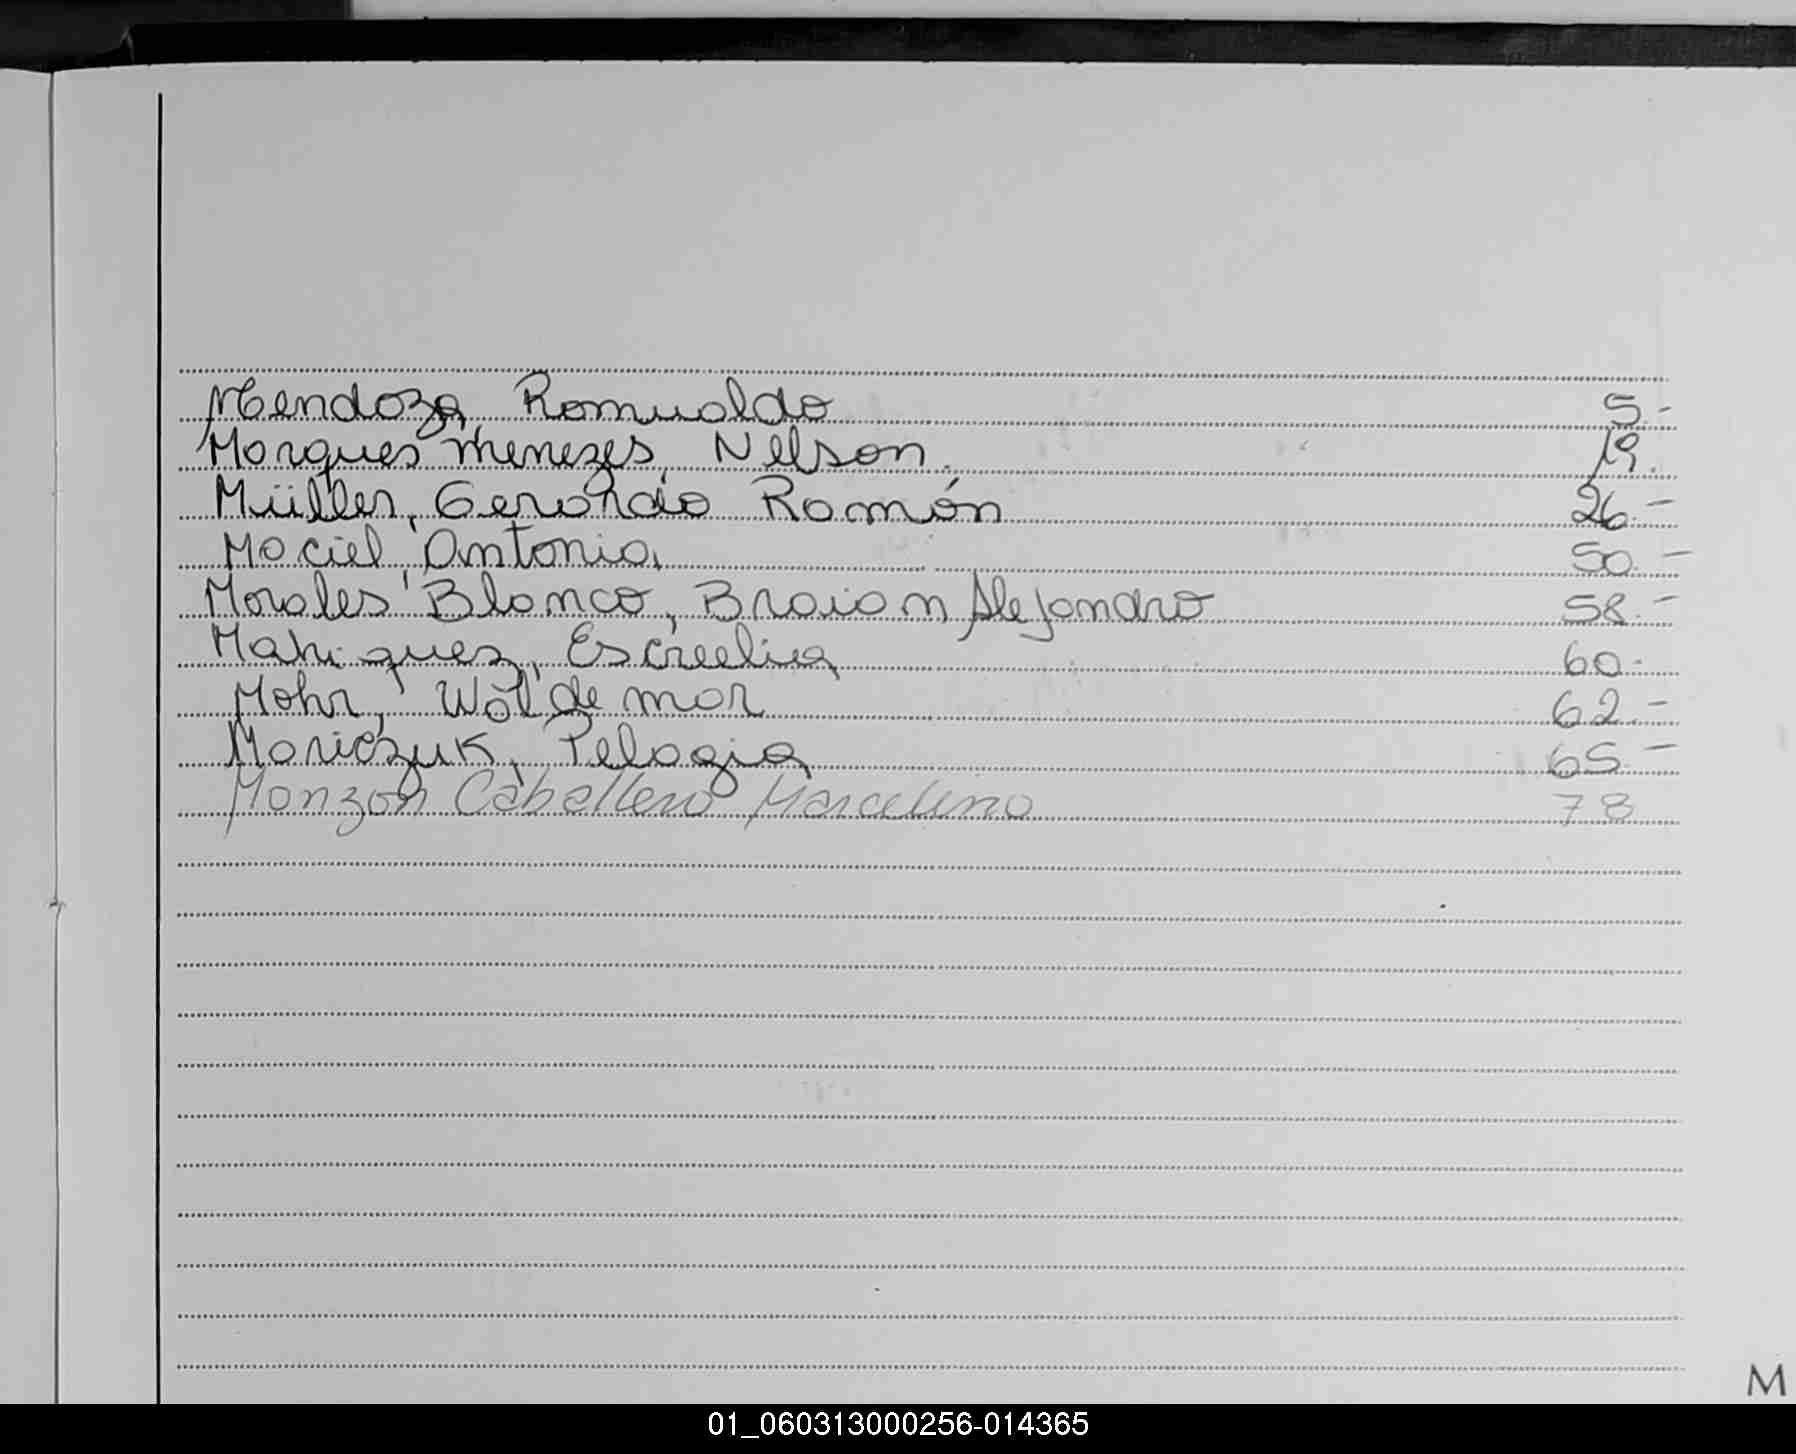 Mendoza, Romualdo 5.-
Marques Menezes, Nelson. 19.
Müller, Gerardo Ramón 26.-
Maciel, Antonia, 50.-
Morales Blanco, Braian Alejandro 58.-
60.-
Mohr, Woldemar 62.-
Mariczuk, Pelagia 65.-
Monzon Caballero Marcelino 78
M
01_060313000256-014365